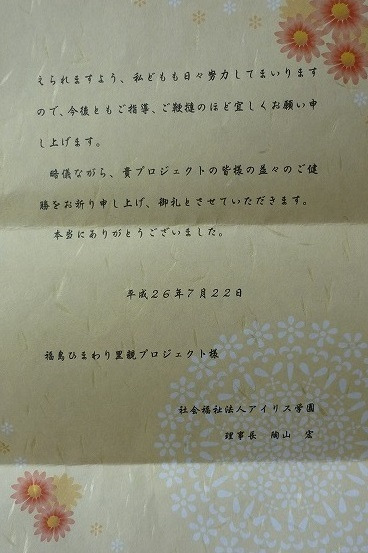 えられますよう、私どもも日々努力してまいります
ので、今後ともご指導、ご鞭撻のほど宜しくお願い申
し上げます。
略儀ながら、貴プロジェクトの皆様の益々のご健
勝をお祈り申し上げ、御礼とさせていただきます。
本当にありがとうございました。
平成26年7月22日
福島ひまわり里親プロジェクト様
社会福祉法人アイリス学園
理事長 陶山 宏